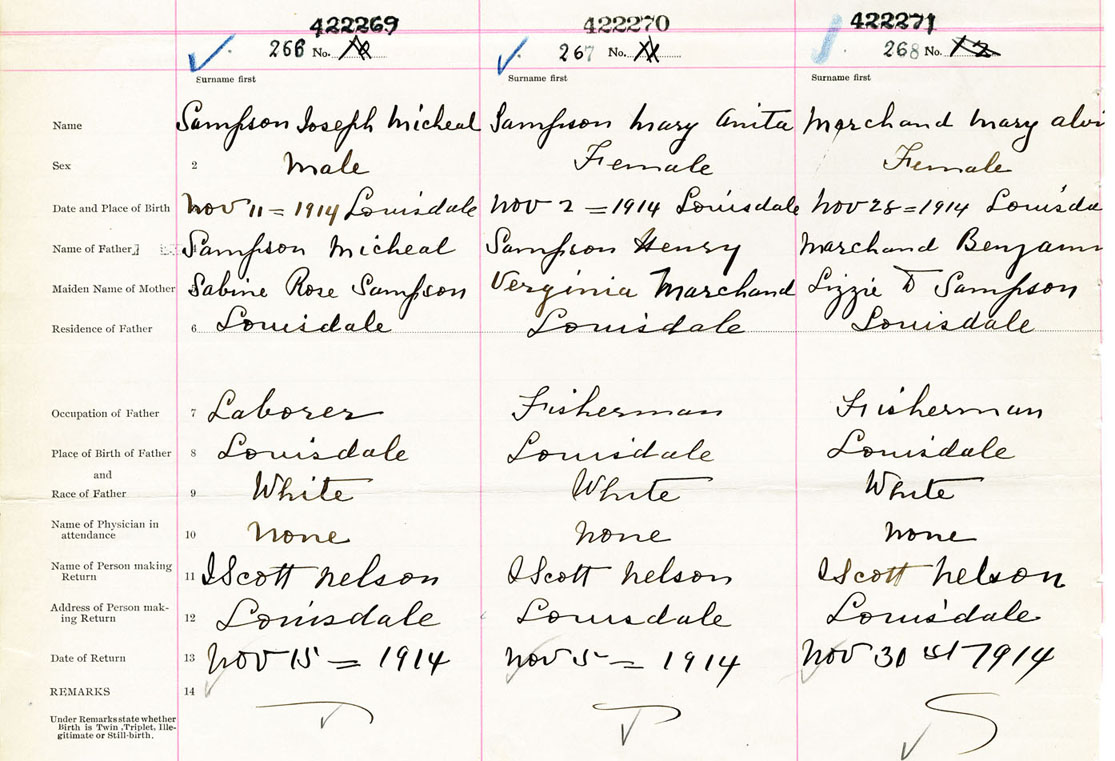 422269 422270 422271
266 No. 10 267 No. 11 268 No. 12
Surname first Surname first Surname first
Name Sampson Joseph Micheal Sampson Mary Anita Marchand Mary alvi
Sex 2 Male Female Female
Date and Place of Birth Nov 11 = 1914 Louisdale Nov 2 = 1914 Louisdale Nov 28 = 1914 Louisda
Name of Father Sampson Micheal Sampson Henry Marchand Benjamin
Maiden Name of Mother Sabine Rose Sampson Verginia Marchand Lizzie D Sampson
Residence of Father 6 Louisdale Louisdale Louisdale
Occupation of Father 7 Laborer Fisherman Fisherman
Place of Birth of Father 8 Louisdale Louisdale Louisdale
and
Race of Father 9 White White White
Name of Physician in
attendance 10 none none none
Name of Person making
Return 11 I Scott Nelson I Scott Nelson I Scott Nelson
Address of Person mak-
ing Return 12 Louisdale Louisdale Louisdale
Date of Return 13 Nov 15 = 1914 Nov 5 = 1914 Nov 30 st 1914
REMARKS 14
Under Remarks state whether
Birth is Twin, Triplet, Ille-
gitimate or Still-birth.